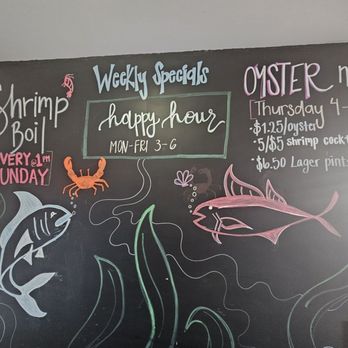 Shrimp
Boil
VERY @ 1pm
UNDAY
Weekly Specials
happy hour
MON-FRI 3-6
OYSTER n
Thursday 4-
• $1.25/oyster
• 5/$5 shrimp cockt
• $6.50 Lager pints